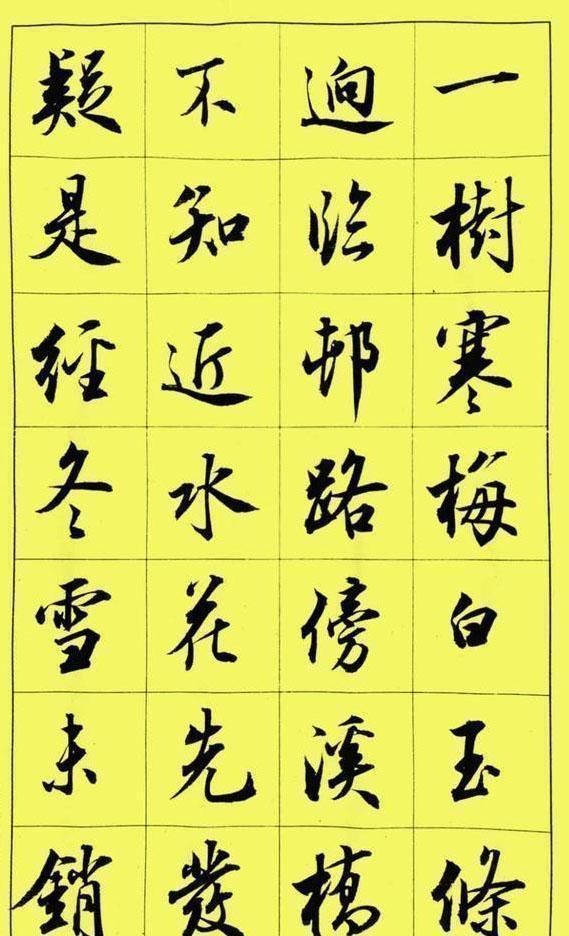 一樹寒梅白玉條
逈臨邨路傍溪橋
不知近水花先發
疑是經冬雪未銷